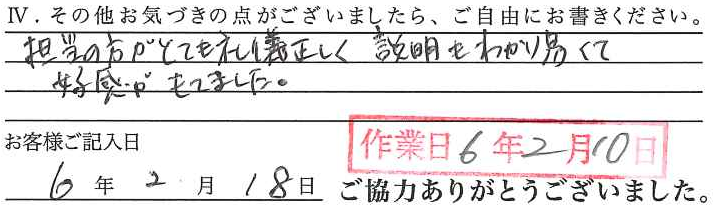 Ⅳ．その他お気づきの点がございましたら、ご自由にお書きください。
担当の方がとても礼儀正しく 説明もわかり易くて
好感がもてました。
お客様ご記入日
作業日 6年2月10日
6年2月18日 ご協力ありがとうございました。